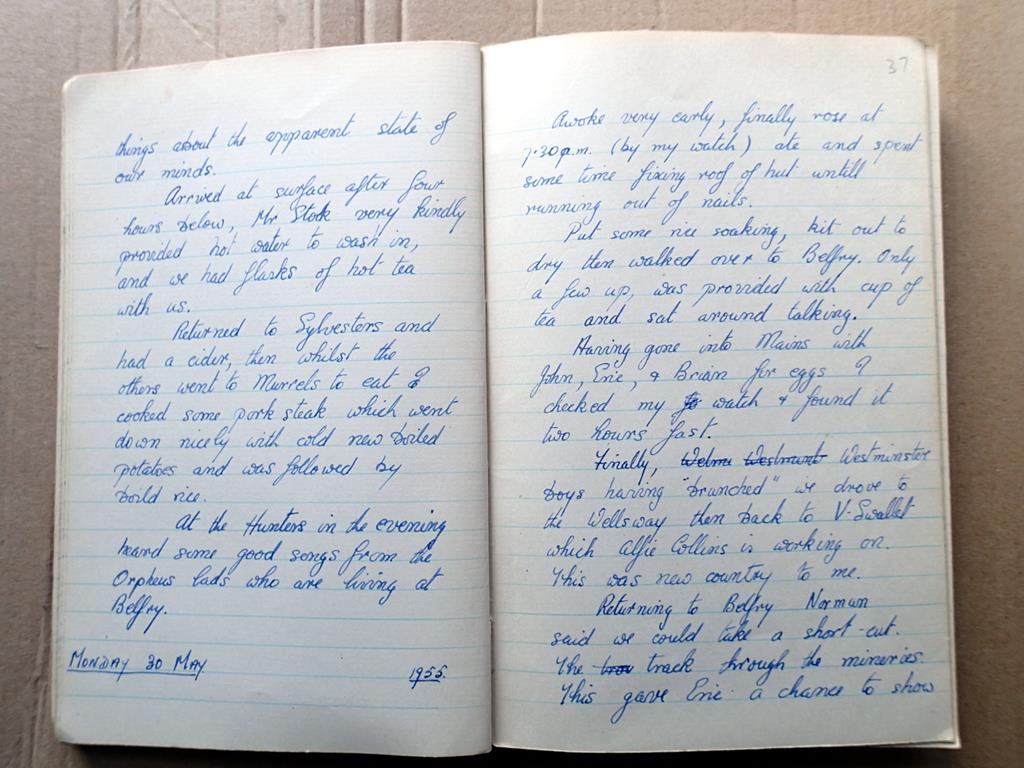 things about the apparent state of
our minds.
Arrived at surface after four
hours below, Mr Stock very kindly
provided hot water to wash in,
and we had flasks of hot tea
with us.
Returned to Sylvesters and
had a cider, then whilst the
others went to Murrels to eat I
cooked some pork steak which went
down nicely with cold new boiled
potatoes and was followed by
boild rice.
At the Hunters in the evening
heard some good songs from the
Orpheus lads who are living at
Belfry.
MONDAY 30 MAY 1955.
37
Awoke very early, finally rose at
7.30a.m. (by my watch) ate and spent
some time fixing roof of hut untill
running out of nails.
Put some rice soaking, kit out to
dry then walked over to Belfry. Only
a few up, was provided with cup of
tea and sat around talking.
Having gone into Mains with
John, Eric, & Brian for eggs I
checked my watch & found it
two hours fast.
Finally, Welmi Westmunt Westminster
boys having "brunched" we drove to
the Wellsway then back to V-Swallet
which Alfie Collins is working on.
This was new country to me.
Returning to Belfry Norman
said we could take a short-cut.
The trou track through the mineries.
This gave Eric a chance to show